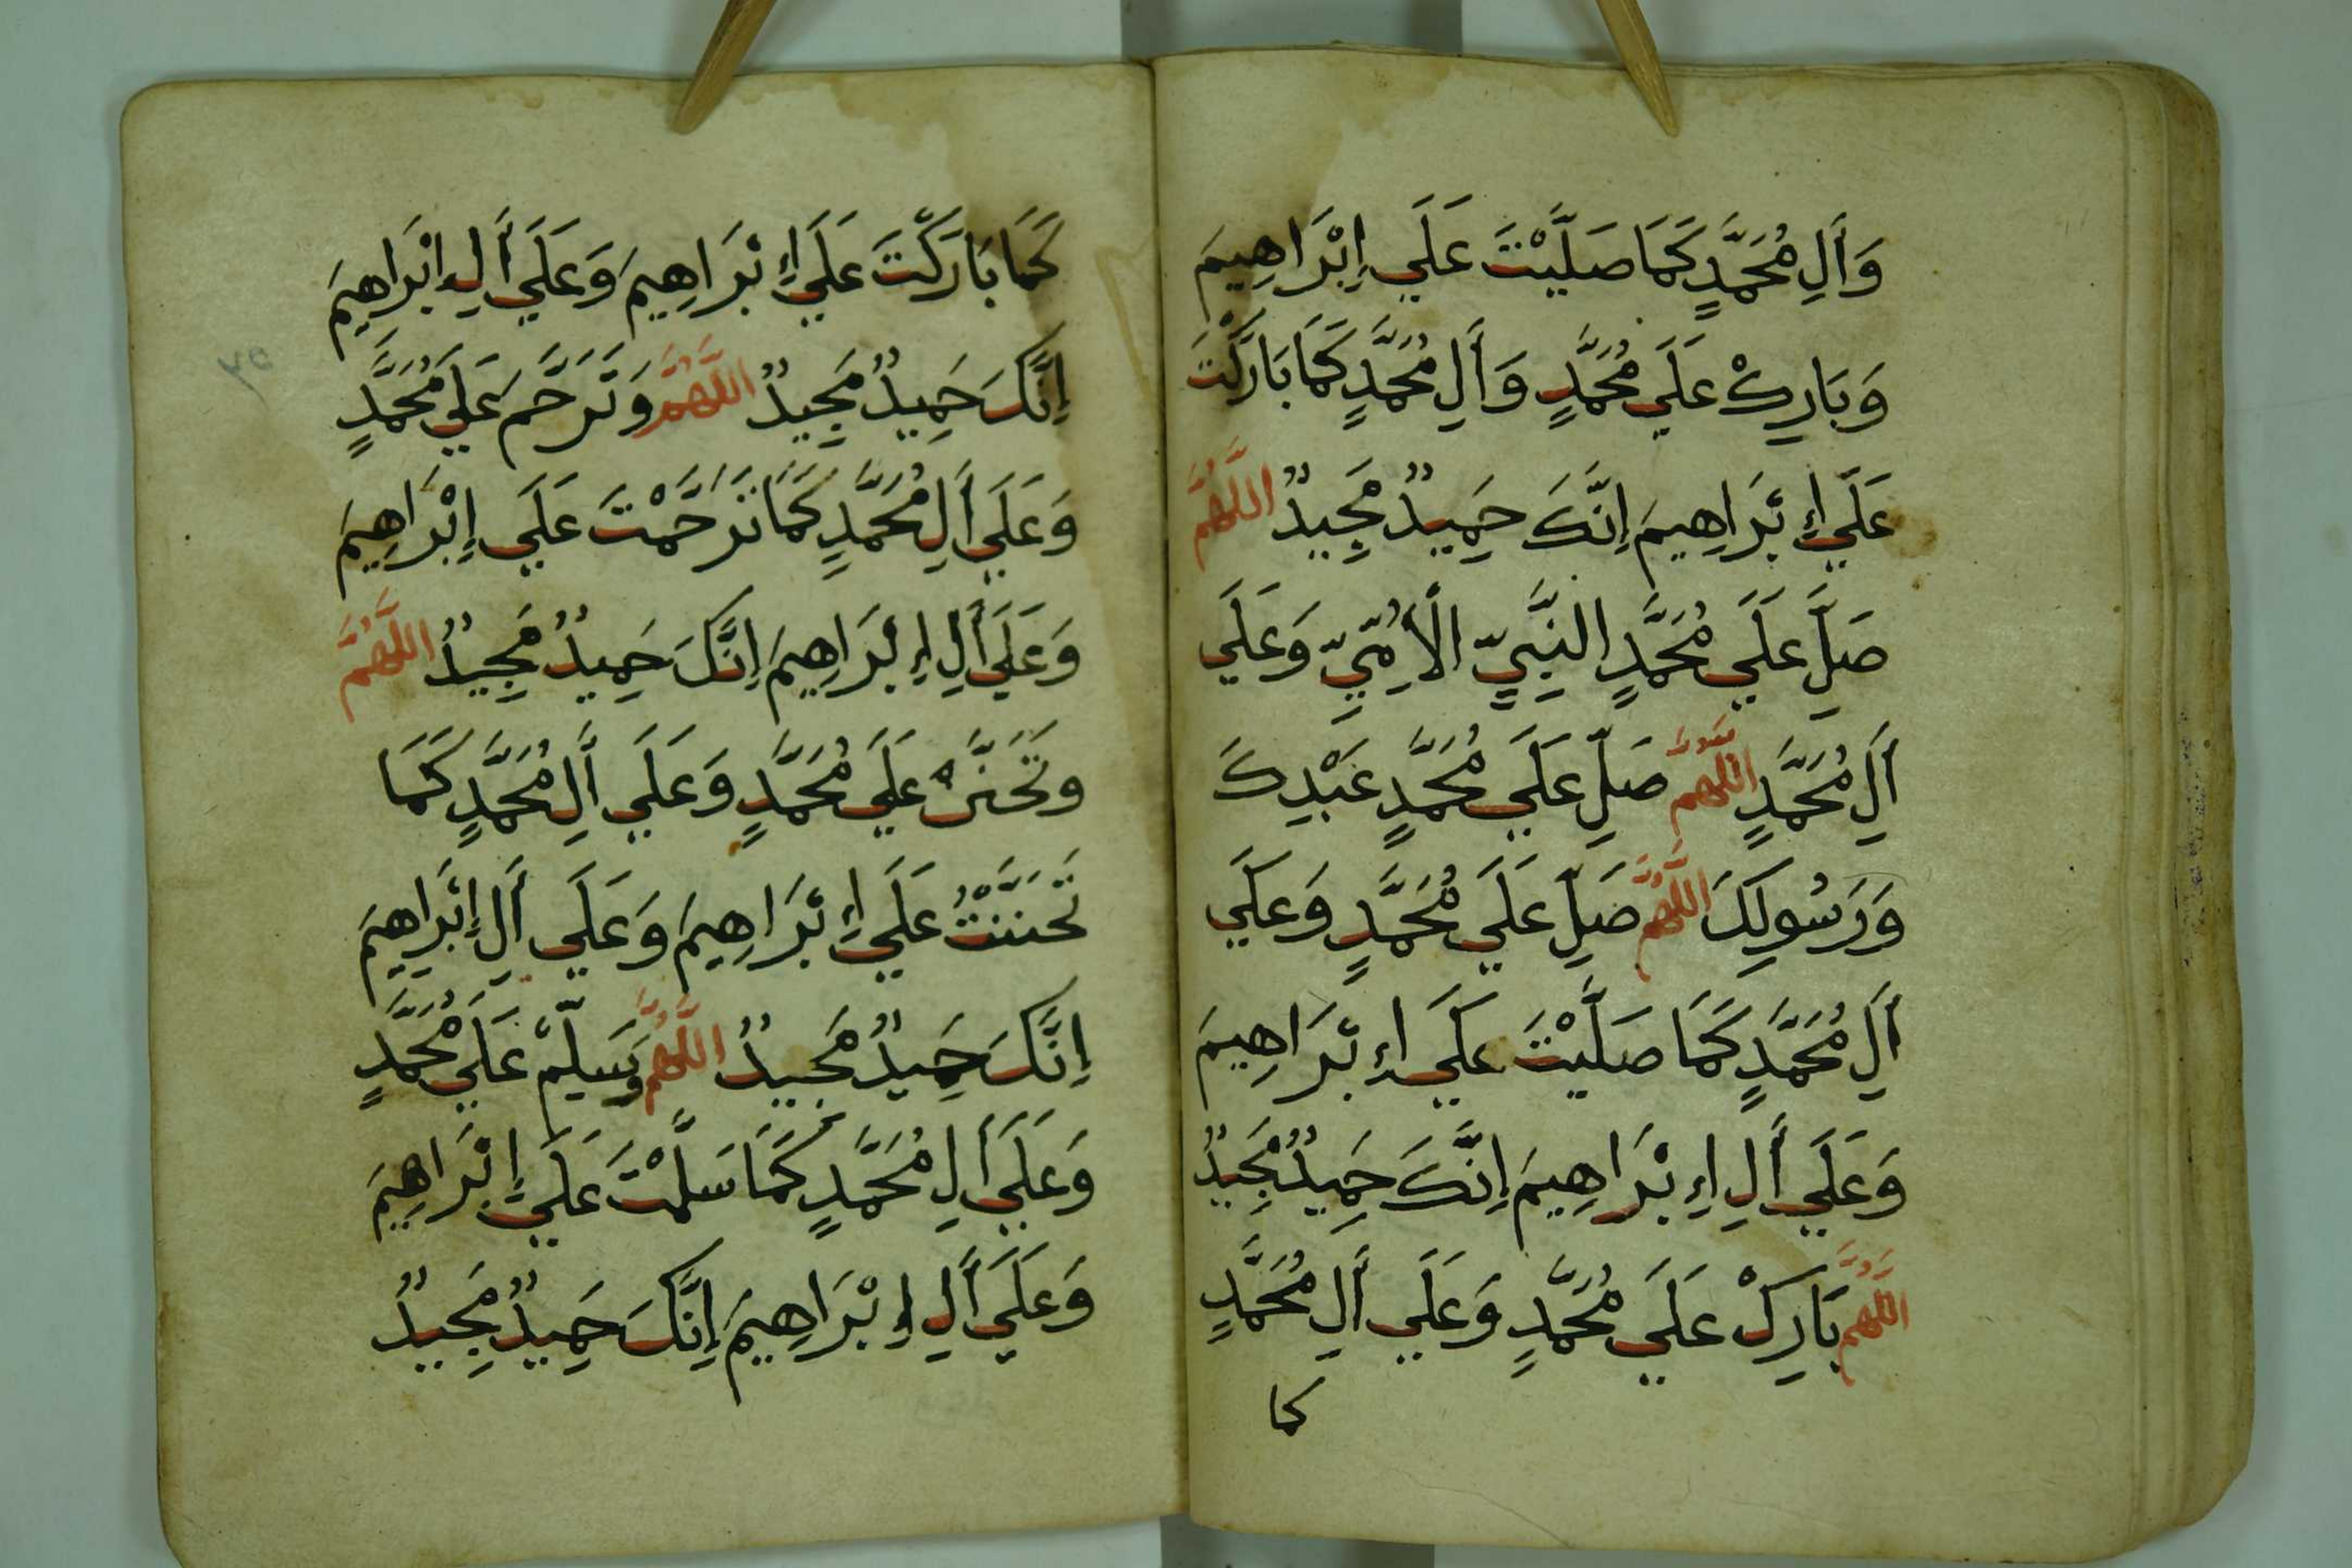 وَأَلِ مُحَمَّدٍ كَمَا صَلَّيْتَ عَلَي إِبْرَاهِيمَ
وَبَارِكْ عَلَي مُحَمَّدٍ وَأَلِ مُحَمَّدٍ كَمَا بَارَكْتَ
عَلَي إِبْرَاهِيمَ إِنَّكَ حَمِيدٌ مَجِيدٌ اللَّهُمَّ
صَلِّ عَلَي مُحَمَّدٍ النَّبِيِّ الْأُمِّيِّ وَعَلَي
أَلِ مُحَمَّدٍ اللَّهُمَّ صَلِّ عَلَي مُحَمَّدٍ عَبْدِكَ
وَرَسُولِكَ اللَّهُمَّ صَلِّ عَلَي مُحَمَّدٍ وَعَلَي
أَلِ مُحَمَّدٍ كَمَا صَلَّيْتَ عَلَي إِبْرَاهِيمَ
وَعَلَي أَلِ إِبْرَاهِيمَ إِنَّكَ حَمِيدٌ مَجِيدٌ
اللَّهُمَّ بَارِكْ عَلَي مُحَمَّدٍ وَعَلَي أَلِ مُحَمَّدٍ
كما
كَمَا بَارَكْتَ عَلَي إِبْرَاهِيمَ وَعَلَي أَلِ إِبْرَاهِيمَ
إِنَّكَ حَمِيدٌ مَجِيدٌ اللَّهُمَّ وَتَرَحَّمْ عَلَي مُحَمَّدٍ
وَعَلَي أَلِ مُحَمَّدٍ كَمَا تَرَحَّمْتَ عَلَي إِبْرَاهِيمَ
وَعَلَي أَلِ إِبْرَاهِيمَ إِنَّكَ حَمِيدٌ مَجِيدٌ اللَّهُمَّ
وَتَحَنَّنْ عَلَي مُحَمَّدٍ وَعَلَي أَلِ مُحَمَّدٍ كَمَا
تَحَنَّنْتُ عَلَي إِبْرَاهِيمَ وَعَلَي أَلِ إِبْرَاهِيمَ
إِنَّكَ حَمِيدٌ مَجِيدٌ اللَّهُمَّ وَسَلِّمْ عَلَي مُحَمَّدٍ
وَعَلَي أَلِ مُحَمَّدٍ كَمَا سَلَّمْتَ عَلَي إِبْرَاهِيمَ
وَعَلَي أَلِ إِبْرَاهِيمَ إِنَّكَ حَمِيدٌ مَجِيدٌ